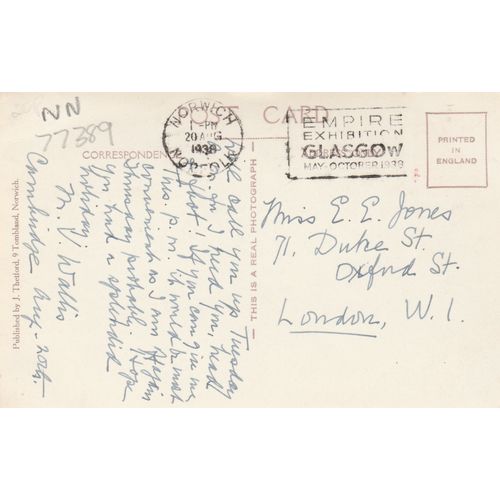 NN
77389
POST CARD
NORWICH
1 - PM
20 AUG
1938
NORFOLK
EMPIRE
EXHIBITION
GLASGOW
MAY-OCTOBER 1938
PRINTED
IN
ENGLAND
CORRESPONDENCE
Published by J. Thetford, 9 Tombland, Norwich.
THIS IS A REAL PHOTOGRAPH
Will call you up Tuesday
when I need you, had
just! If you can give me
this p.m. it would be most
convenient as I am
Thursday probably. Hope
you had a splendid
holiday.
M. V. Wallis
Cambridge next - 20th.
Miss E. E. Jones
71, Duke St.
Oxford St.
London, W.1.